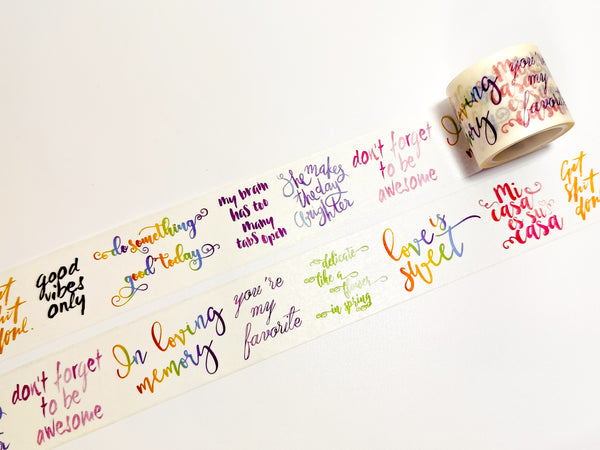 good
vibes
only
do something
good today
my brain
has too
many
tabs open
She makes
the day
brighter
don't forget
to be
awesome
In loving
memory
you're
my
Mi
casa
es su
casa
don't forget
to be
awesome
In loving
memory
you're
my
favorite
delicate
like a
flower
in spring
love's
sweet
Mi
casa
es su
casa
Get
shit